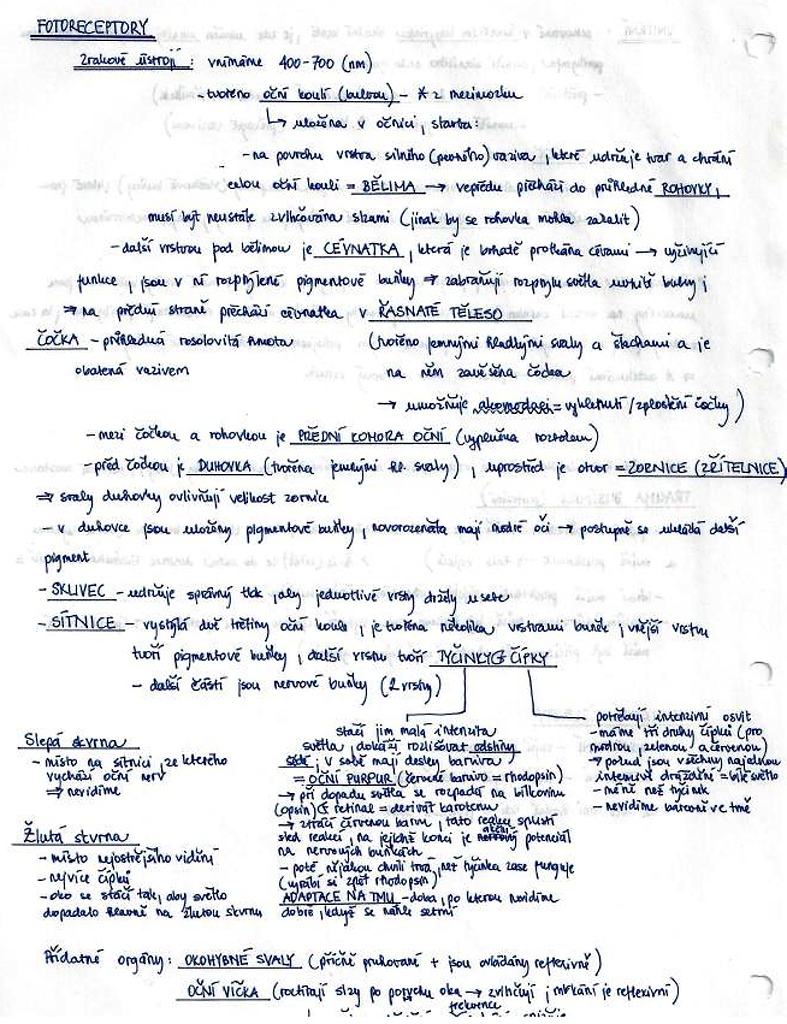 FOTORECEPTORY
Zrakové ústrojí: vnímáme 400-700 (nm)
- tvořeno oční koulí (bulvou) - * z mezimozku
↳ uložena v očnici, stavba:
- na povrchu vrstva silného (pevného) vaziva, které udržuje tvar a chrání
celou oční kouli = BĚLIMA → vepředu přechází do průhledné ROHOVKY,
musí být neustále zvlhčována slzami (jinak by se rohovka mohla zakalit)
- další vrstvou pod bělimou je CÉVNATKA, která je bohatě protkána cévami → vyživující
funkce, jsou v ní rozptýlené pigmentové buňky ⇒ zabraňují rozptylu světla uvnitř bulvy;
⇒ na přední straně přechází cévnatka v ŘASNATÉ TĚLESO
ČOČKA - průhledná rosolovitá hmota (tvořeno jemnými hladkými svaly a šlachami a je
obalená vazivem na něm zavěšena čočka
→ umožňuje akomodaci = vyklenutí/zploštění čočky)
- mezi čočkou a rohovkou je PŘEDNÍ KOMORA OČNÍ (vyplněna roztokem)
- před čočkou je DUHOVKA (tvořena jemnými hl. svaly), uprostřed je otvor = ZORNICE (ZŘÍTELNICE)
⇒ svaly duhovky ovlivňují velikost zornice
- v duhovce jsou uloženy pigmentové buňky, novorozeňata mají modré oči → postupně se ukládá další
pigment
- SKLIVEC - udržuje správný tlak, aby jednotlivé vrstvy držely u sebe
- SÍTNICE - vystýlá dvě třetiny oční koule, je tvořena několika vrstvami buněk, vnější vrstvu
tvoří pigmentové buňky, další vrstvu tvoří TYČINKY & ČÍPKY
- další částí jsou nervové buňky (2 vrstvy)
Slepá skvrna
- místo na sítnici, ze kterého
vychází oční nerv
⇒ nevidíme
Žlutá skvrna
- místo nejostřejšího vidění
- nejvíce čípků
- oko se stáčí tak, aby světlo
dopadalo hlavně na žlutou skvrnu
stačí jim malá intenzita
světla, dokáží rozlišovat odstíny
šedé; v sobě mají destky barviva
= OČNÍ PURPUR (červené barvivo = rhodopsin)
→ při dopadu světla se rozpadá na bílkovinu
(opsin) & retinal = derivát karotenu
→ ztrácí červenou barvu, tato reakce spustí
sled reakcí, na jejichž konci je akční potenciál
na nervových buňkách
- poté nějakou chvíli trvá, než tyčinka zase funguje
(vyrábí si zpět rhodopsin)
ADAPTACE NA TMU - doba, po kterou nevidíme
dobře, když se náhle setmí
potřebují intenzivní osvit
- máme tři druhy čípků (pro
modrou, zelenou, a červenou)
→ pokud jsou všechny najednou
intenzivně drážděni = bílé světlo
- méně než tyčinek
- nevidíme barevně ve tmě
Přídatné orgány: OKOHYBNÉ SVALY (příčně pruhované + jsou ovládány reflexivně)
OČNÍ VÍČKA (roztírají slzy po povrchu oka → zvlhčují; mrkání je reflexivní)
frekvence